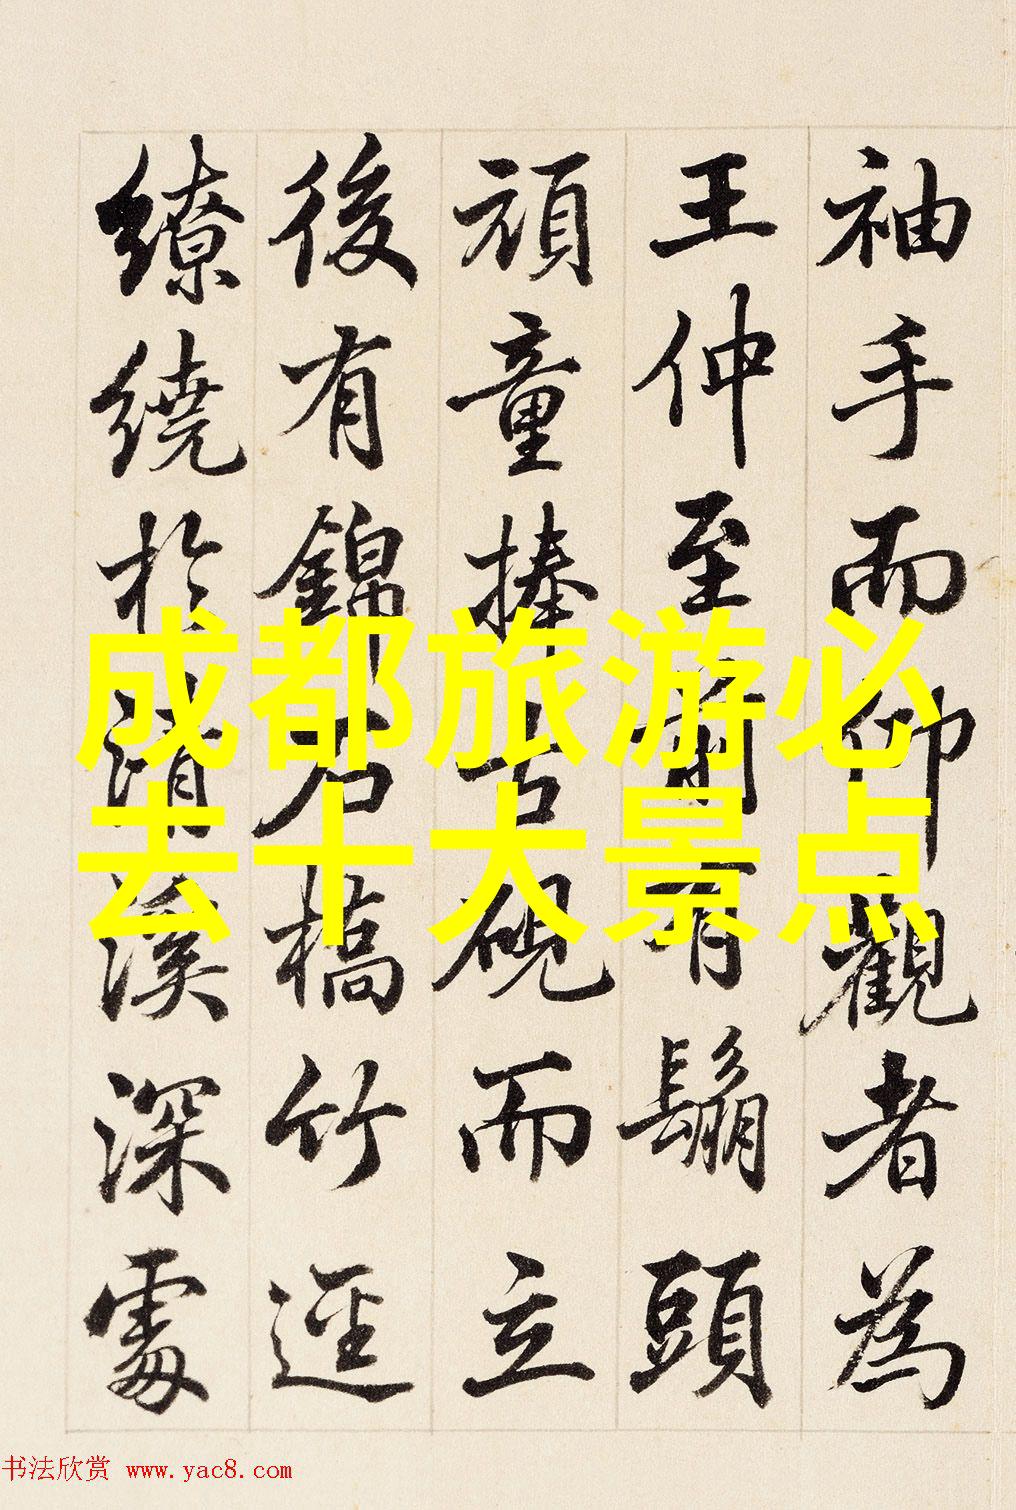 袖手而仰觀者為
王仲至前有鬅頭
頑童捧古硯而立
後有錦石橋竹逕
繚繞於清溪深處
成都旅游必
去十大景点
书法欣赏 www.yac8.com